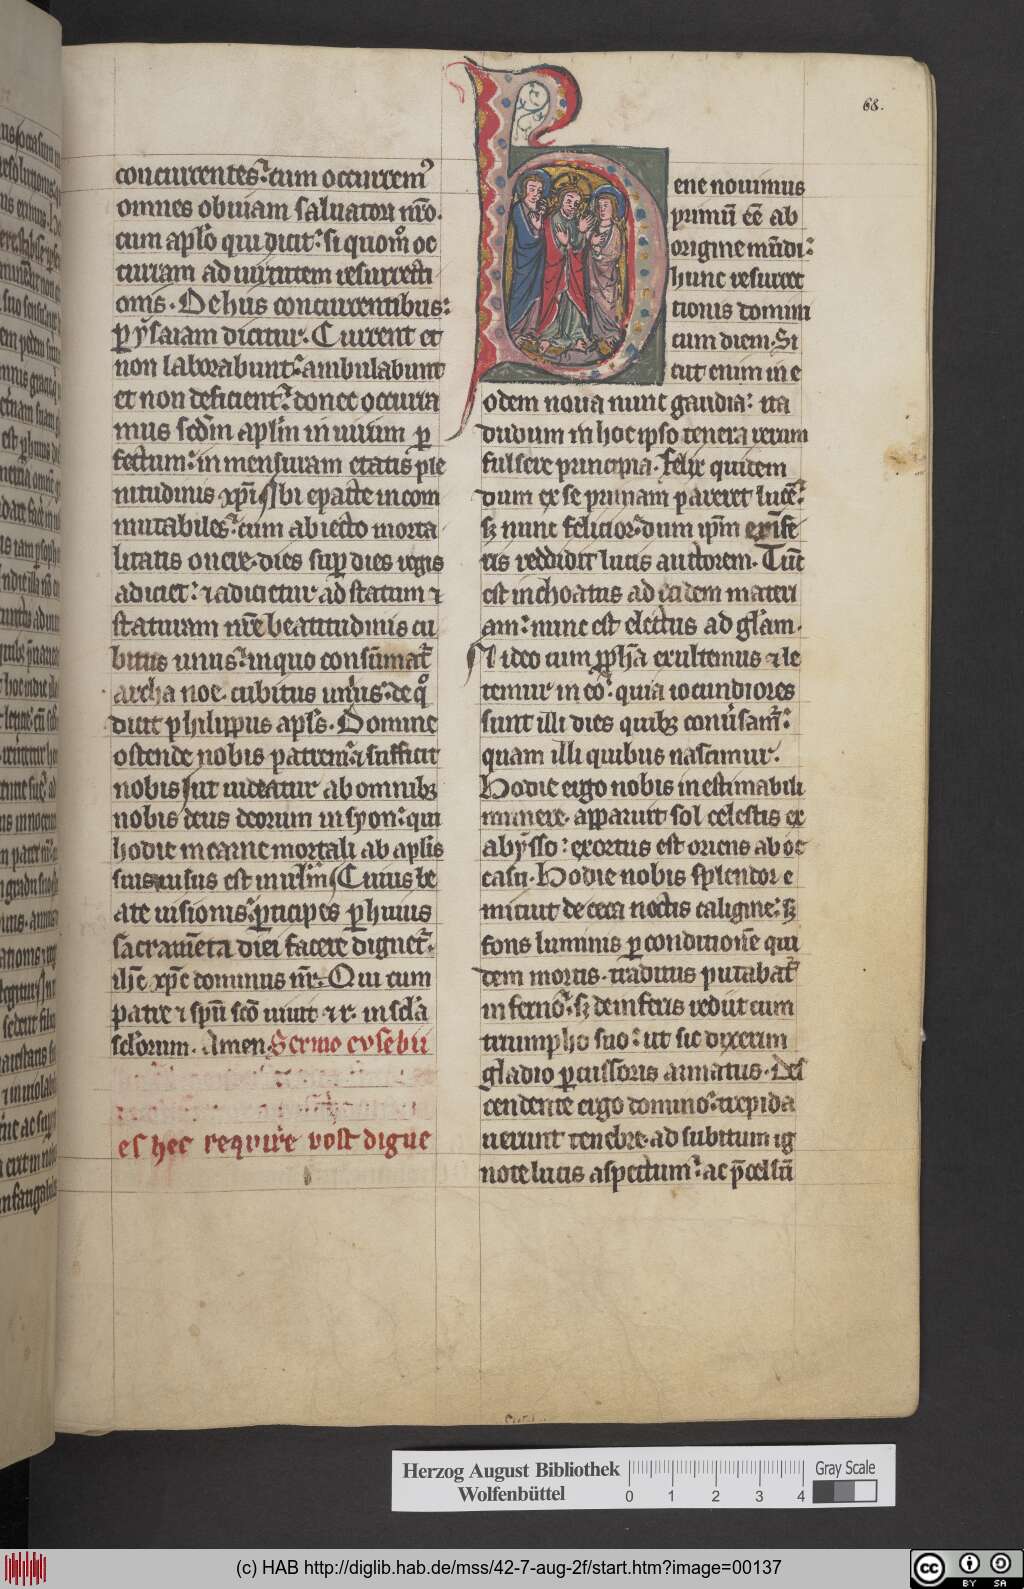 68.
concurrentes. cum occurrem᷒
omnes obuiam saluatori nr̄o.
cum apl̄o qui dicit. si quom̊ oc
curram ad uirtutem resurrecti
onis. De hus concurrentibus:
ꝑ ysaiam dicitur. Current et
non laborabunt. ambulabunt
et non deficient. donec occurra
mus scd̄m apl̄m in uirum ꝑ
fectum. in mensuram etatis ple
nitudinis xp̄i Ibi epacte incom
mutabiles. cum abiecto morta
litatis onere. dies suꝑ dies regis
adiciet. ⁊ adicietur ad statum ⁊
staturam nr̄e beatitudinis cu
bitus unus. in quo consūmat᷑
archa noe. cubitus unus. de qͦ
dicit philippus apl̄s. Domine
ostende nobis patrem. ⁊ sufficit
nobis ut uideatur ab omnibꝫ
nobis deus deorum in syon. qui
hodie in carne mortali ab apl̄is
suis uisus est in irl̄m Cuius be
ate uisionis. ꝑticipes ꝑ huius
sacram̄eta diei facere dignet᷑.
ihē xpē dominus nr̄. Qui cum
patre ⁊ sp̄u sc̄o uiuit ⁊ r. in scl̄a
scl̄orum. Amen. Sermo evsebii
es hec reqvire post digne
Bene nouimus
primū eē ab
origine mūdi.
hunc resurrec
tionis domini
cum diem. Si
cut enim in e
odem noua nunc gaudia. ita
dudum in hoc ipso tenera rerum
fulsere principia. Felix quidem
dum ex se primam pareret lucē.
sꝫ nunc felicior. dum ip̄m ex īfe
ris reddidit lucis auctorem. Tūc
est inchoatus ad eidem materi
am. nunc est electus ad gl̄am.
Ideo cum ꝓph̄a exultemus ⁊ le
temur in eo. quia iocundiores
sunt illi dies quibꝫ conūsam᷑.
quam illi quibus nascimur.
Hodie ergo nobis inestimabili
munere. apparuit sol celestis ex
abysso. exortus est oriens ab oc
casu. Hodie nobis splendor e
micuit de ceca noctis caligine. sꝫ
fons luminis ꝑ conditionē qui
dem mortis. traditus putabat᷑
inferno. sꝫ de inferis rediit cum
triumpho suo. ut sic dixerim
gladio ꝑcussoris armatus. Des
cendente ergo domino. trepida
uerunt tenebre. ad subitum ig
note lucis aspectum. ac p̄celsū
Herzog August Bibliothek
Wolfenbüttel
0 1 2 3 4
Gray Scale
(c) HAB http://diglib.hab.de/mss/42-7-aug-2f/start.htm?image=00137
cc BY SA